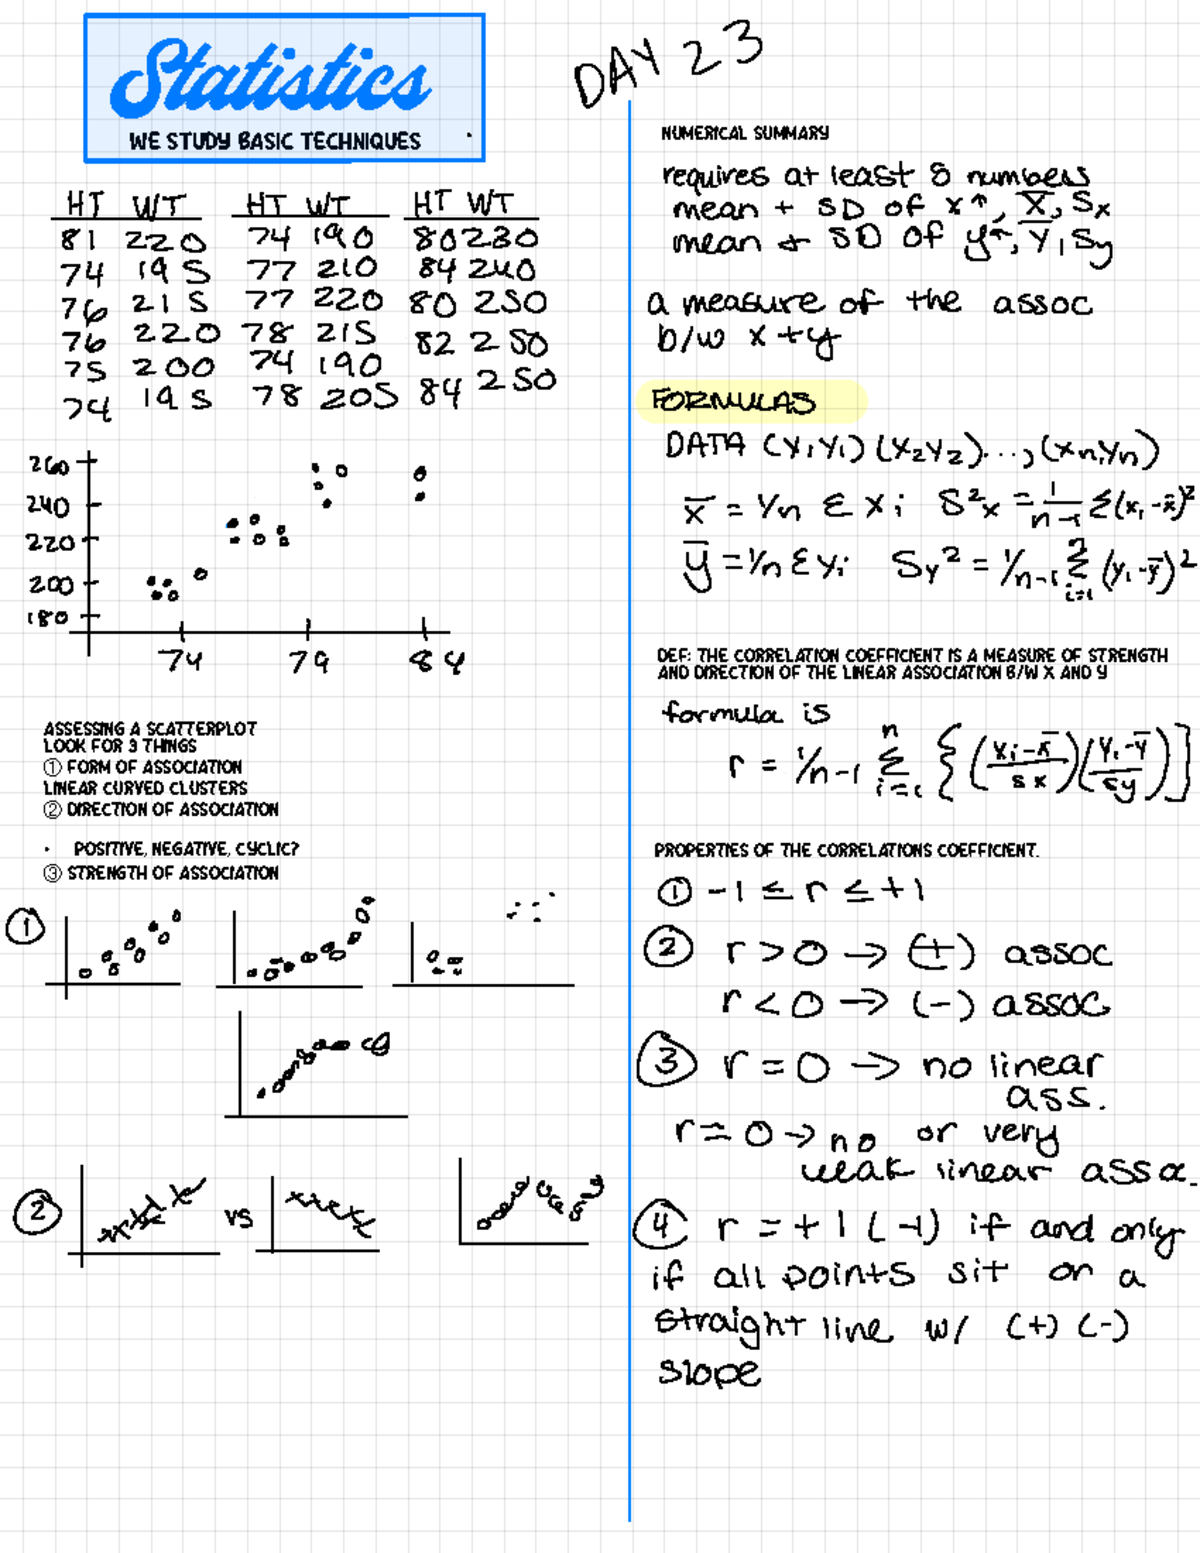 Statistics
WE STUDY BASIC TECHNIQUES
DAY 23
HT WT HT WT HT WT
81 220 74 190 80 230
74 195 77 210 84 240
76 215 77 220 80 250
76 220 78 215 82 250
75 200 74 190 84 250
74 195 78 205
260
240
220
200
180
74 79 84
ASSESSING A SCATTERPLOT
LOOK FOR 3 THINGS
① FORM OF ASSOCIATION
LINEAR CURVED CLUSTERS
② DIRECTION OF ASSOCIATION
• POSITIVE, NEGATIVE, CYCLIC?
③ STRENGTH OF ASSOCIATION
①
② vs
NUMERICAL SUMMARY
requires at least 5 numbers
mean + SD of x↑, X̄, Sx
mean + SD of y↑, Ȳ, Sy
a measure of the assoc
b/w x + y
FORMULAS
DATA (X₁Y₁) (X₂Y₂)..., (Xn,Yn)
x̄ = 1/n Σ Xi S²x = 1/n-1 Σ(x₁-x̄)²
ȳ = 1/n Σ Yi Sy² = 1/n-1 Σ i=1 n (y₁-ȳ)²
DEF: THE CORRELATION COEFFICIENT IS A MEASURE OF STRENGTH
AND DIRECTION OF THE LINEAR ASSOCIATION B/W X AND Y
formula is
r = 1/n-1 Σ i=1 n {(xi-x̄/sx)(yi-ȳ/sy)}
PROPERTIES OF THE CORRELATIONS COEFFICIENT.
① -1 ≤ r ≤ +1
② r > 0 → (+) assoc
r < 0 → (-) assoc
③ r = 0 → no linear
ass.
r ≈ 0 → no or very
weak linear assoc.
④ r = +1 (-1) if and only
if all points sit on a
straight line w/ (+) (-)
slope